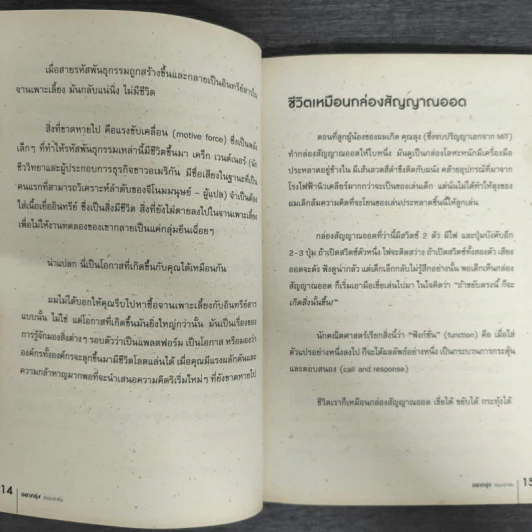 เมื่อสายรหัสพันธุกรรมถูกสร้างขึ้นและกลายเป็นอินทรีย์สารใน
จานเพาะเลี้ยง มันกลับแน่นิ่ง ไม่มีชีวิต
สิ่งที่ขาดหายไป คือแรงขับเคลื่อน (motive force) ซึ่งเป็นพลัง
เล็กๆ ที่ทำให้รหัสพันธุกรรมเหล่านี้มีชีวิตขึ้นมา เคร็ก เวนเตอร์ (นัก
ชีววิทยาและผู้ประกอบการธุรกิจชาวอเมริกัน มีชื่อเสียงในฐานะที่เป็น
คนแรกที่สามารถวิเคราะห์ลำดับของจีโนมมนุษย์ - ผู้แปล) จำเป็นต้อง
ใส่เนื้อเยื่ออินทรีย์ ซึ่งเป็นสิ่งมีชีวิต สิ่งที่ยังไม่ตายลงไปในจานเพาะเลี้ยง
เพื่อไม่ให้งานทดลองของเขากลายเป็นแค่กลุ่มยีนเฉื่อยๆ
น่าแปลก นี่เป็นโอกาสที่เกิดขึ้นกับคุณได้เหมือนกัน
ผมไม่ได้บอกให้คุณรีบไปหาซื้อจานเพาะเลี้ยงกับอินทรีย์สาร
แบบนั้น ไม่ใช่ แต่โอกาสที่เกิดขึ้นมันยิ่งใหญ่กว่านั้น มันเป็นเรื่องของ
การรู้จักมองสิ่งต่างๆ รอบตัวว่าเป็นแพลตฟอร์ม เป็นโอกาส หรือมองว่า
องค์กรทั้งองค์กรจะลุกขึ้นมามีชีวิตโลดแล่นได้ เมื่อคุณมีแรงผลักดันและ
ความกล้าหาญมากพอที่จะนำเสนอความคิดริเริ่มใหม่ๆ ที่ยังขาดหายไป
14
ชีวิตเหมือนกล่องสัญญาณออด
ตอนที่ลูกผู้น้องของผมเกิด คุณลุง (ซึ่งจบปริญญาเอกจาก MIT)
ทำกล่องสัญญาณออดให้ใบหนึ่ง มันดูเป็นกล่องโลหะหนักมีเครื่องมือ
ประหลาดอยู่ข้างใน มีเส้นลวดสีดำซึ่งติดกับผนัง คล้ายอุปกรณ์ที่มาจาก
โรงไฟฟ้านิวเคลียร์มากกว่าจะเป็นของเล่นเด็ก แต่นั่นไม่ได้ทำให้ลุงของ
ผมเลิกล้มความคิดที่จะโยนของเล่นประหลาดชิ้นนี้ให้ลูกเล่น
กล่องสัญญาณออดที่ว่านี้มีสวิตช์ 2 ตัว มีไฟ และปุ่มบังคับอีก
2-3 ปุ่ม ถ้าเปิดสวิตช์ตัวหนึ่ง ไฟจะติดสว่าง ถ้าเปิดสวิตช์ทั้งสองตัว เสียง
ออดจะดัง ฟังดูน่ากลัว แต่เด็กเล็กกลับไม่รู้สึกอย่างนั้น พอเด็กเห็นกล่อง
สัญญาณออด ก็เริ่มเอามือเขี่ยเล่นไปมา ในใจคิดว่า "ถ้าขยับตรงนี้ ก็จะ
เกิดสิ่งนั้นขึ้น!"
นักคณิตศาสตร์เรียกสิ่งนี้ว่า "ฟังก์ชัน" (function) คือ เมื่อใส่
ตัวแปรอย่างหนึ่งลงไป ก็จะได้ผลลัพธ์อย่างหนึ่ง เป็นกระบวนการกระตุ้น
และตอบสนอง (call and response)
ชีวิตเราก็เหมือนกล่องสัญญาณออด เขี่ยได้ ขยับได้ กระทุ้งได้
15